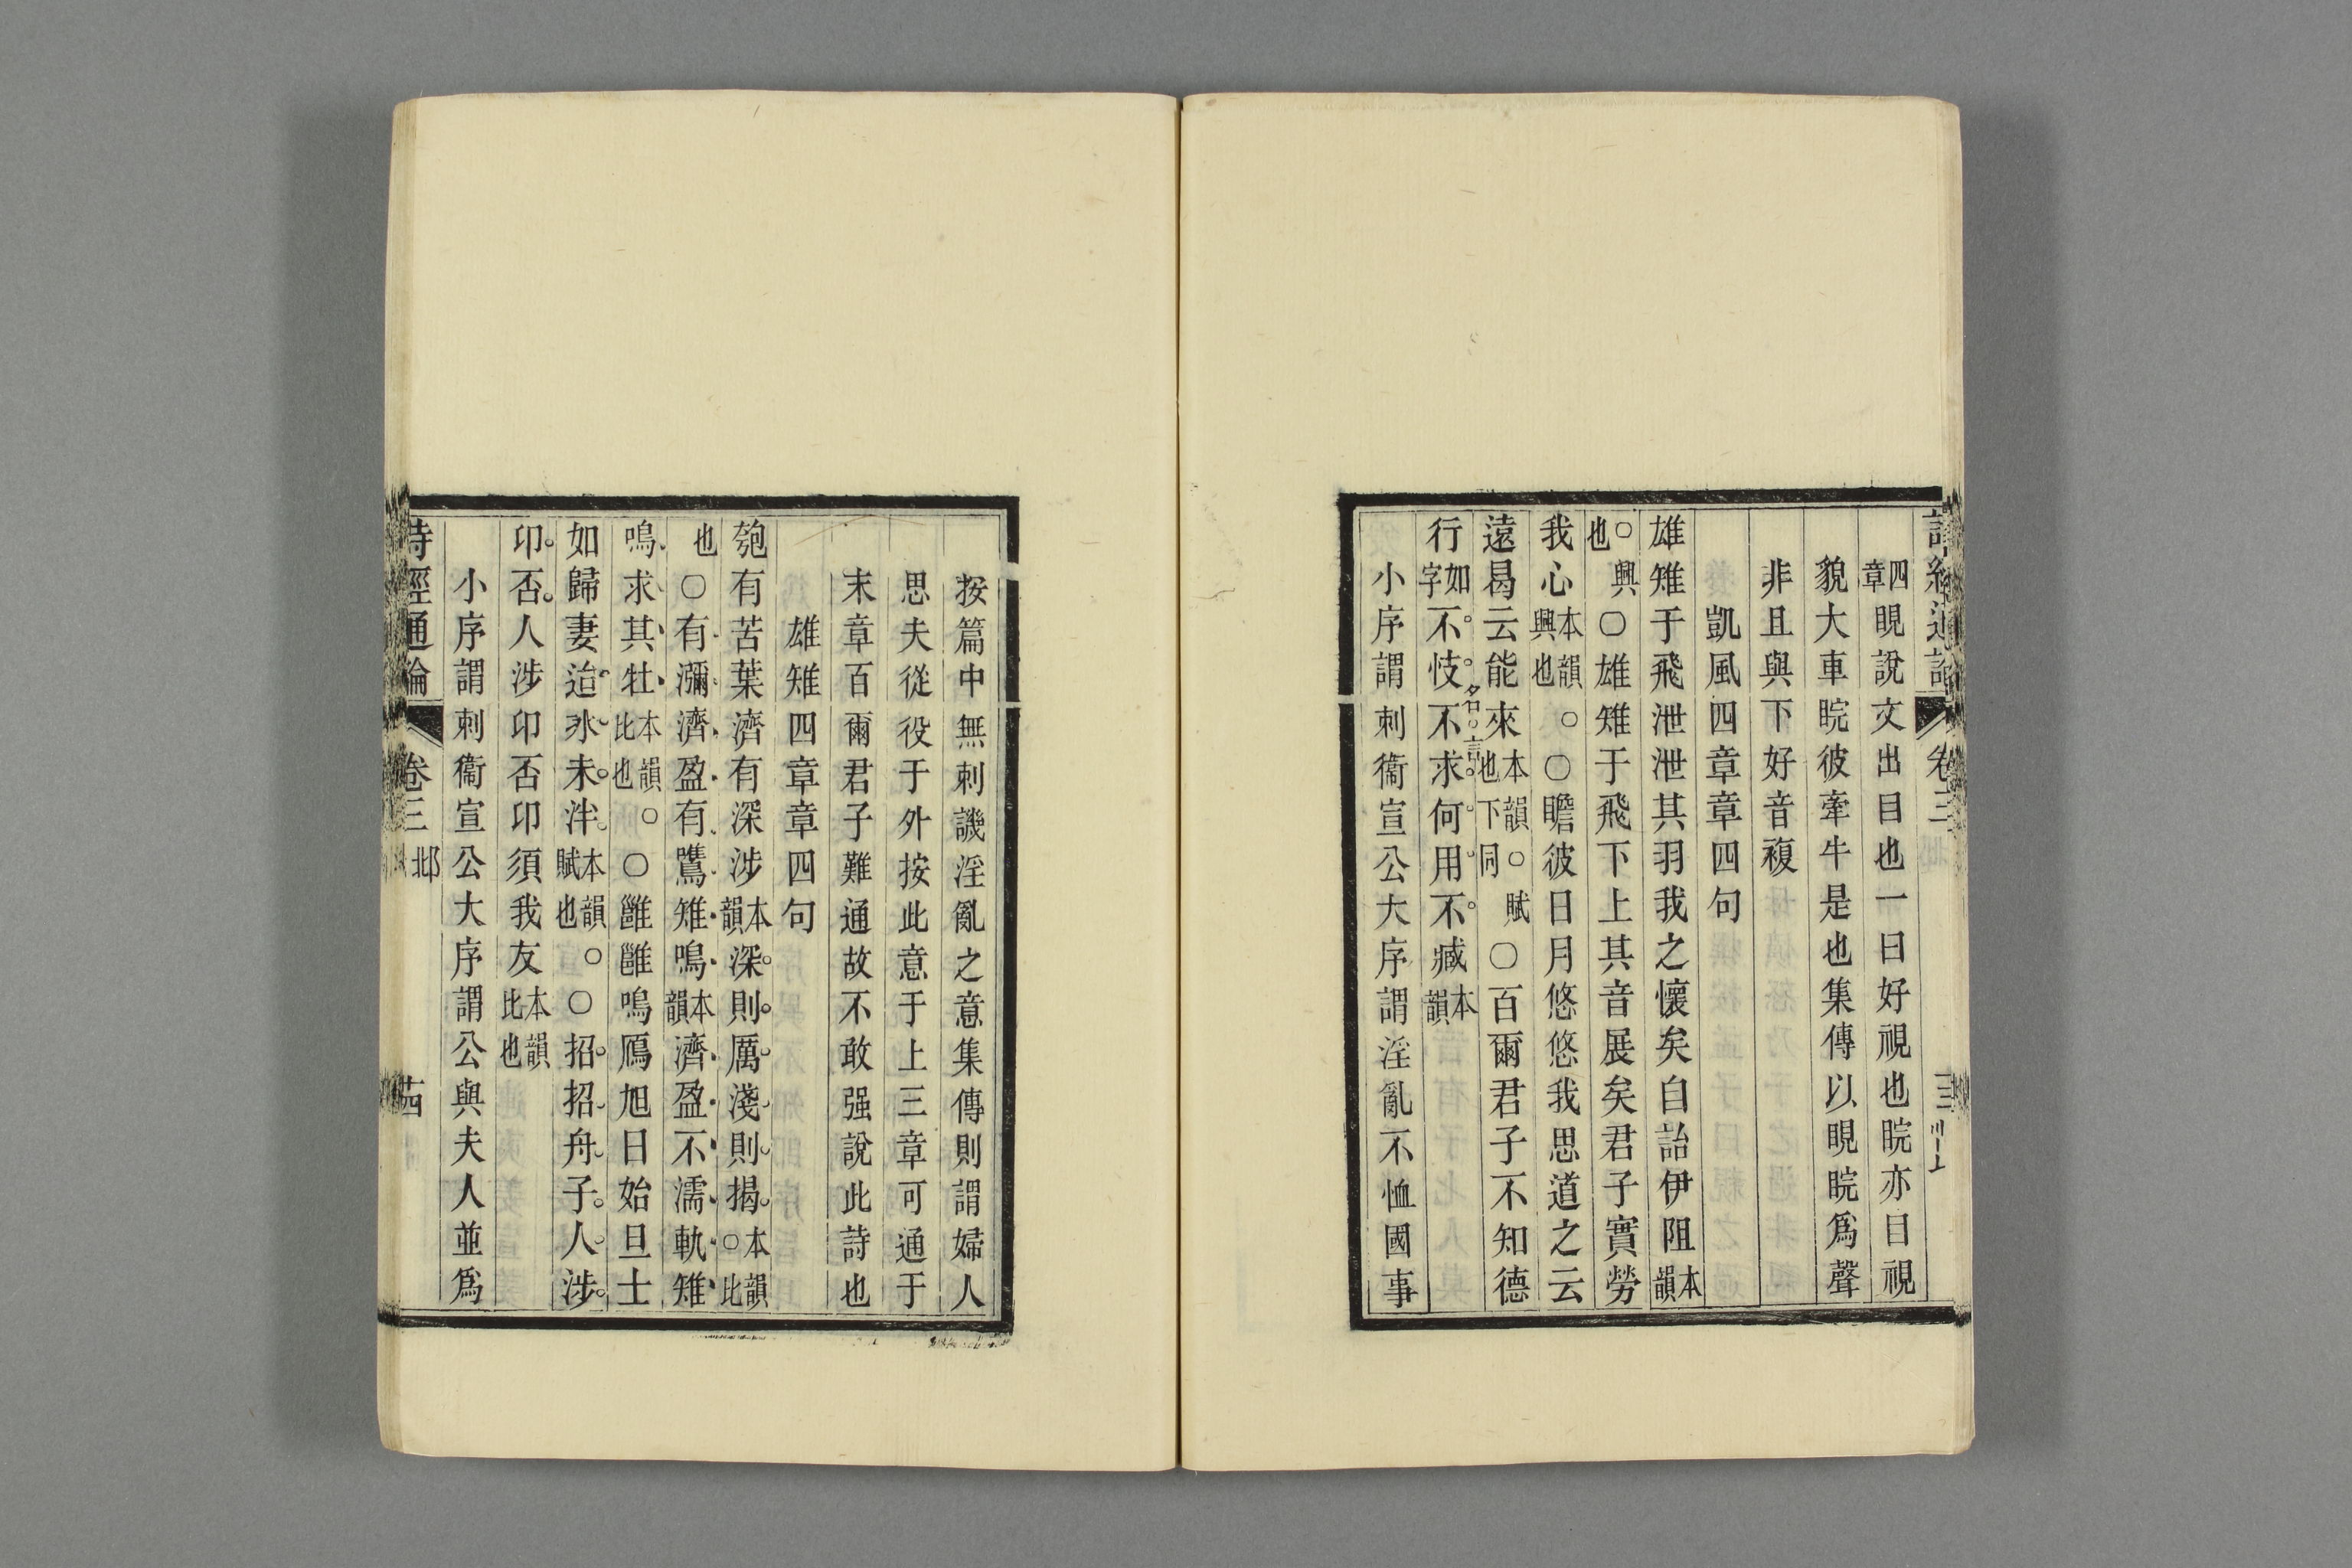 四章睍說文出目也一曰好視也睆亦目視
貌大車睆彼牽牛是也集傳以睍睆爲聲
非且與下好音複
凱風四章章四句
雄雉于飛泄泄其羽我之懷矣自詒伊阻本韻
○興也○雄雉于飛下上其音展矣君子實勞
我心本韻興也○○瞻彼日月悠悠我思道之云
遠曷云能來本韻○賦也下同○百爾君子不知德
行如字不忮不求何用不臧本韻
小序謂刺衞宣公大序謂淫亂不恤國事
按篇中無刺譏淫亂之意集傳則謂婦人
思夫從役于外按此意于上三章可通于
末章百爾君子難通故不敢强說此詩也
雄雉四章章四句
匏有苦葉濟有深涉本韻深則厲淺則揭本韻○比
也○有瀰濟盈有鷕雉鳴本韻濟盈不濡軌雉
鳴求其牡本韻○比也○雝雝鳴鴈旭日始旦士
如歸妻迨氷未泮本韻○賦也○招招舟子人涉
卬否人涉卬否卬須我友本韻比也
小序謂刺衞宣公大序謂公與夫人並爲
詩經通論 卷三 邶 十四